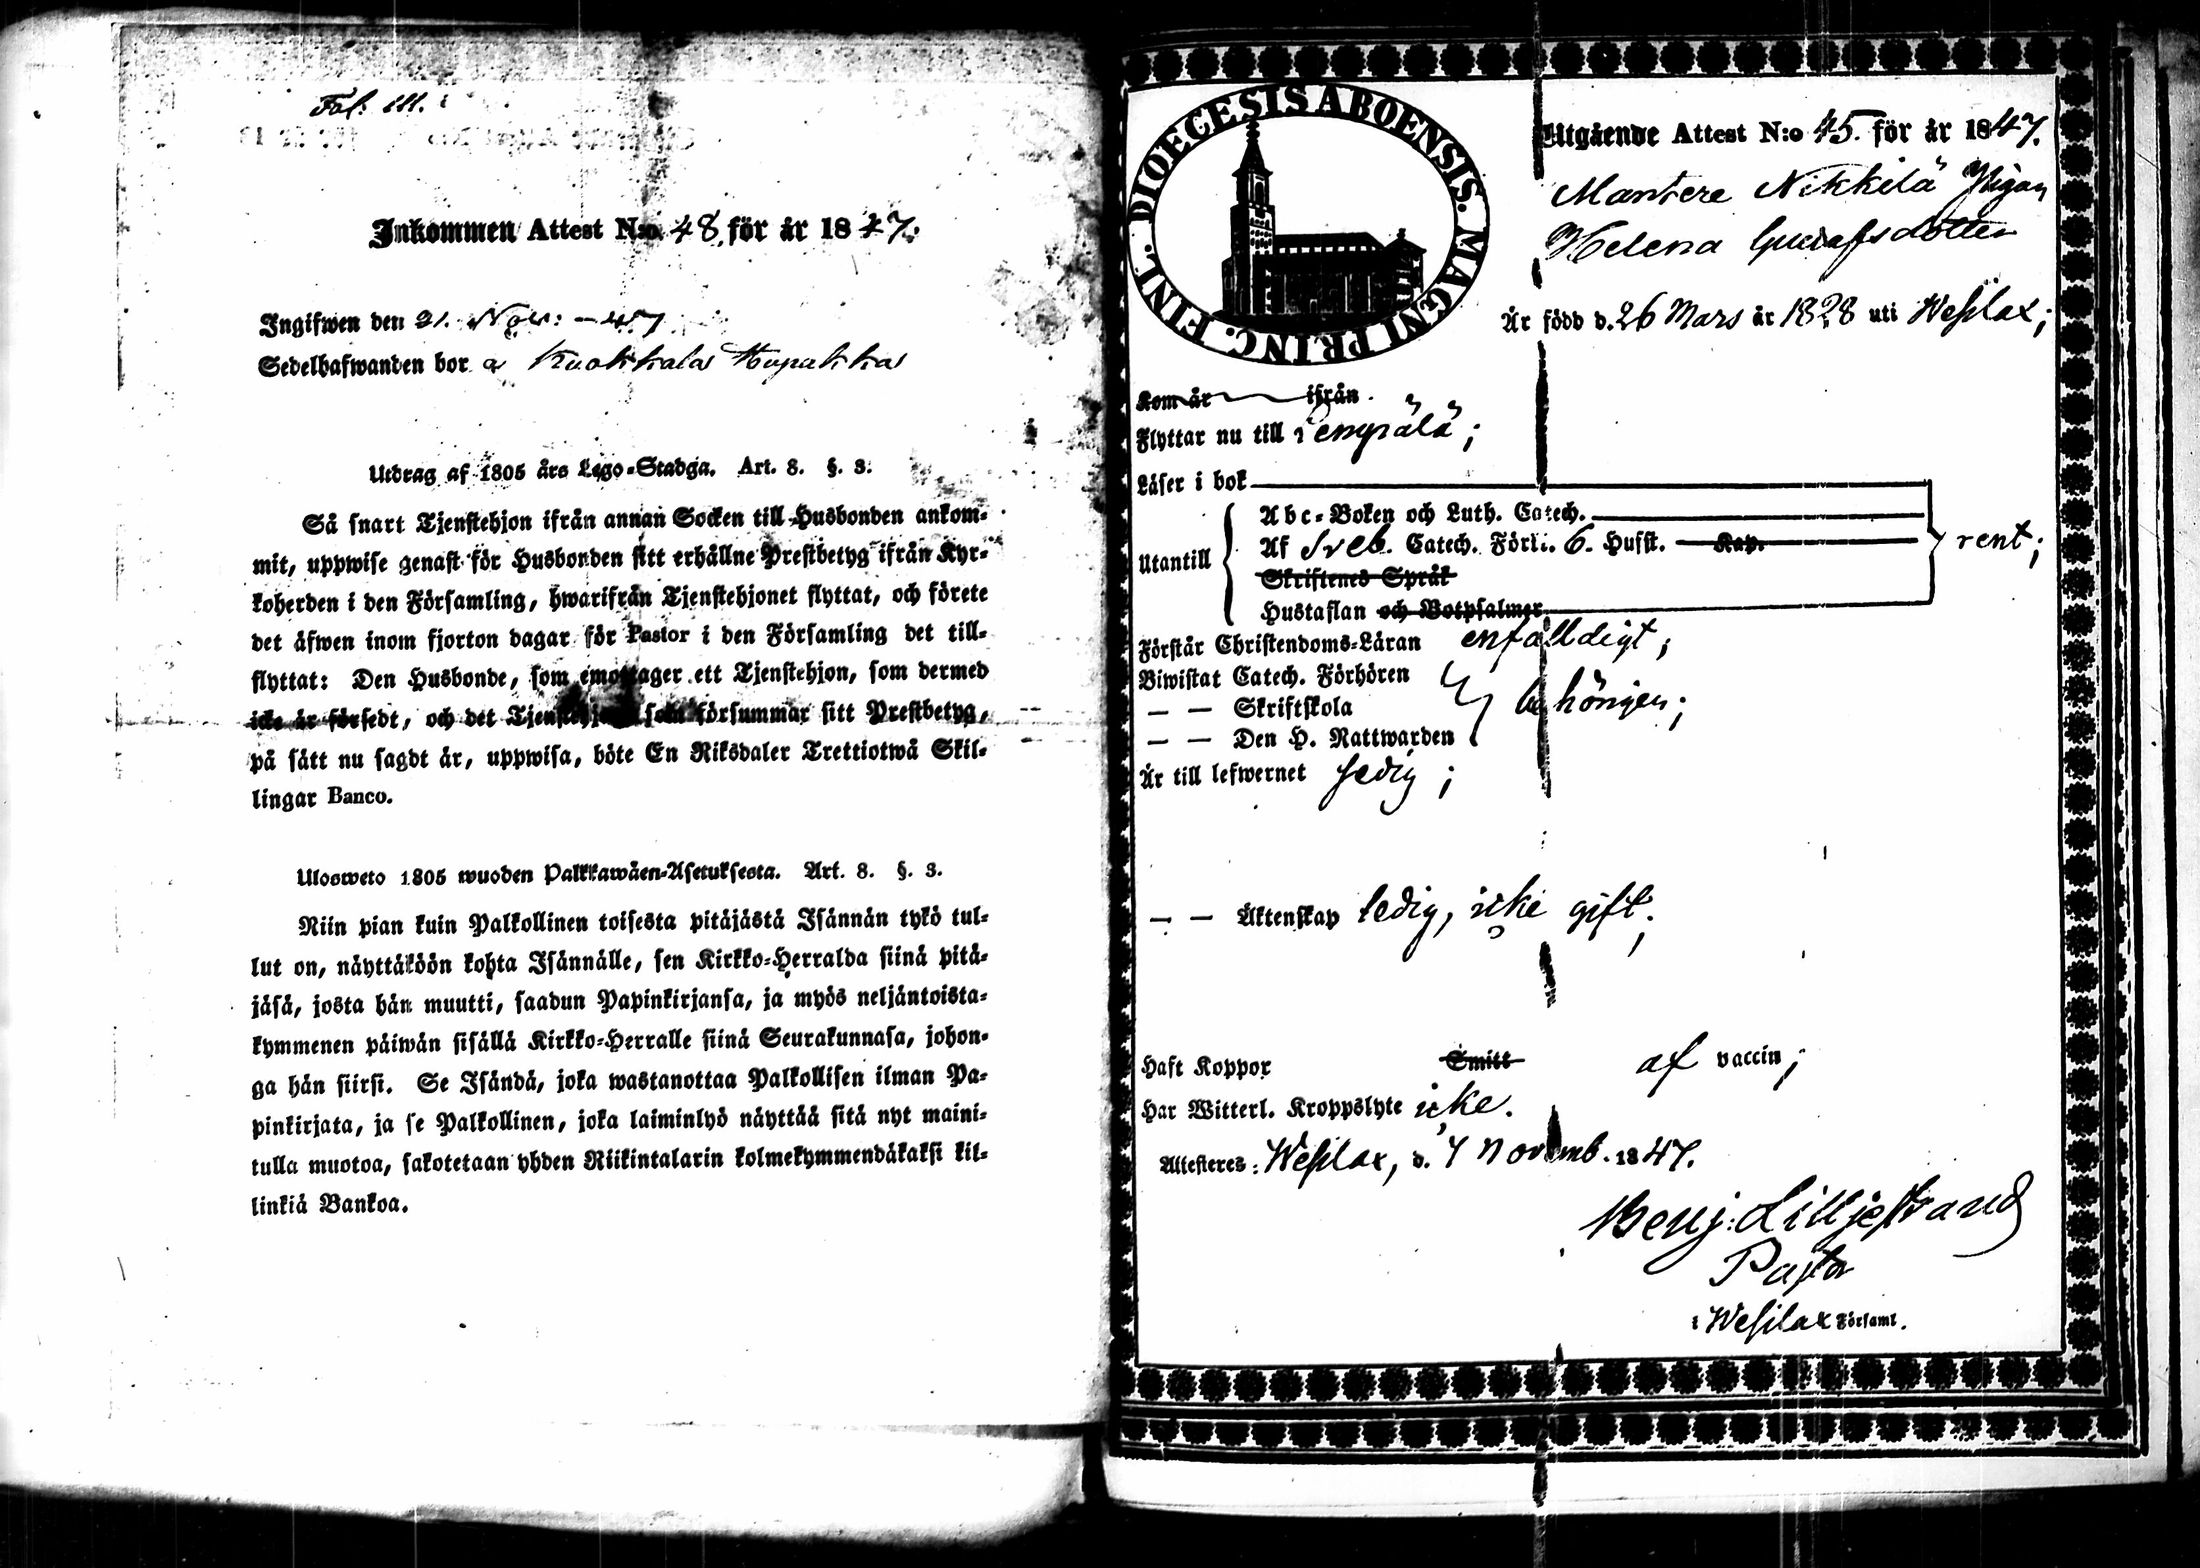 Fol: 111.
Inkommen Attest N:o 48, för år 1847.
Ingifwen den 21. Nov: -47
Sedelhafwanden bor a Kuokkala
Utdrag af 1805 års Lego-Stadga. Art. 8. §. 3.
Så snart Tjenstehjon ifrån annan Socken till Husbonden ankom-
mit, uppwise genast för Husbonden sitt erhållne Prestbetyg ifrån Kyr-
koherden i den Församling, hwarifrån Tjenstehjonet flyttat, och förete
det åfwen inom fjorton dagar för Pastor i den Församling det till-
flyttat: Den Husbonde, som emottager ett Tjenstehjon, som dermed
icke är försedt, och det Tjenstehjon som försummar sitt Prestbetyg,
på sätt nu sagdt är, uppwisa, böte En Riksdaler Trettiotwå Skil-
lingar Banco.
Ulosweto 1805 wuoden Palkkawäen-Asetuksesta. Art. 8. §. 3.
Niin pian kuin Palkollinen toisesta pitäjästä Isännän tykö tul-
lut on, näyttäköön kohta Isännälle, sen Kirkko-Herralda siinä pitä-
jäsä, josta hän muutti, saadun Papinkirjansa, ja myös neljäntoista-
kymmenen päiwän sisällä Kirkko-Herralle siinä Seurakunnasa, johon-
ga hän siirsi. Se Isändä, joka wastanottaa Palkollisen ilman Pa-
pinkirjata, ja se Palkollinen, joka laiminlyö näyttää sitä nyt maini-
tulla muotoa, sakotetaan yhden Riikintalarin kolmekymmendäkaksi kil-
linkiä Bankoa.
DIOECESIS ABOENSIS. MAGNI PRINC. FINL.
Utgående Attest N:o 45. för år 1847.
Mantere Nikkilä Pigan
Helena Gustafsdotter
Är född d. 26 Mars år 1828 uti Wesilax;
Kom år ifrån
Flyttar nu till Lempälä;
Läser i bok
Abc-Boken och Luth. Catech.
Utantill
Af Sveb. Catech. Förkl. 6. Hufst. Kap.
rent;
Skriftenes Språk
Hustaflan och Botpsalmer
Förstår Christendoms-Läran enfalldigt;
Biwistat Catech. Förhören
— — Skriftskola
behörigen;
— — Den H. Nattwarden
Är till lefwernet sedig;
— — Äktenskap ledig, icke gift;
Haft Koppor Smitt af vaccin;
Har Witterl. Kroppslyte icke.
Attesteres: Wesilax, d. 7 Novemb. 1847.
Benj: Lilljestrand
Pastor
i Wesilax Församl.